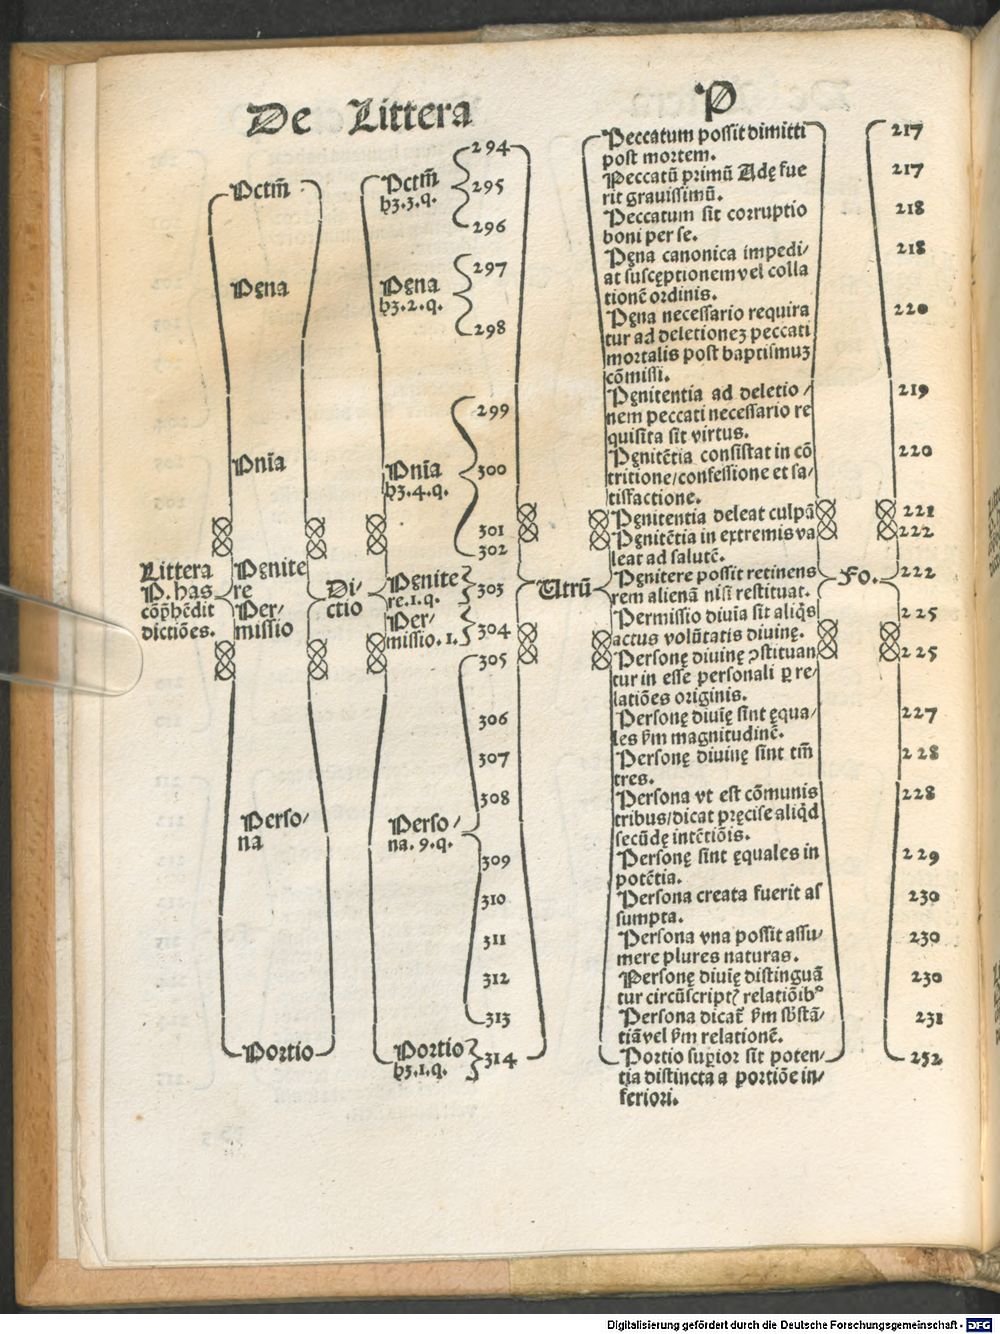 De Littera P
Littera
P. has
cōp̄hēdit
dictiões.
Pctm̄
Pęna
Pnīa
Pęnite
re
Per-
missio
Perso/
na
Portio
Di-
ctio
Pctm̄
hȝ.3.q.
Pęna
hȝ.2.q.
Pnīa
hȝ.4.q.
Pęnite
re.1.q.
Per-
missio.1.
Perso/
na.9.q.
Portio
hȝ.1.q.
294
295
296
297
298
299
300
301
302
303
304
305
306
307
308
309
310
311
312
313
314
Utrū
Peccatum possit dimitti
post mortem.
Peccatū primū Adę fue
rit grauissimū.
Peccatum sit corruptio
boni per se.
Pęna canonica impedi/
at suscęptionem vel colla
tionē ordinis.
Pęna necessario requira
tur ad deletioneȝ peccati
mortalis post baptismuȝ
cōmissi.
Pęnitentia ad deletio/
nem peccati necessario re
quisita sit virtus.
Pęnitētia consistat in cō
tritione/confessione et sa/
tisfactione.
Pęnitentia deleat culpā
Pęnitētia in extremis va
leat ad salutē.
Pęnitere possit retinens
rem alienā nisi restituat.
Permissio diuīa sit aliqs
actus volūtatis diuinę.
Personę diuinę ꝯstituan
tur in esse personali ꝑ re/
latiões originis.
Personę diuīę sint ęqua/
les ẜm magnitudinē.
Personę diuinę sint tm̄
tres.
Persona vt est cōmunis
tribus/dicat pręcise aliqd̄
secūdę intētiõis.
Personę sint ęquales in
potētia.
Persona creata fuerit as
sumpta.
Persona vna possit assu/
mere plures naturas.
Personę diuīę distinguā
tur circūscriptꝭ relatiõibꝰ
Persona dicat̄ ẜm sb̄stā/
tiā vel ẜm relationē.
Portio suꝑior sit poten/
tia distincta a portiõe in/
feriori.
Fo.
217
217
218
218
220
219
220
221
222
222
225
225
227
228
228
229
230
230
230
231
232
Digitalisierung gefördert durch die Deutsche Forschungsgemeinschaft - DFG